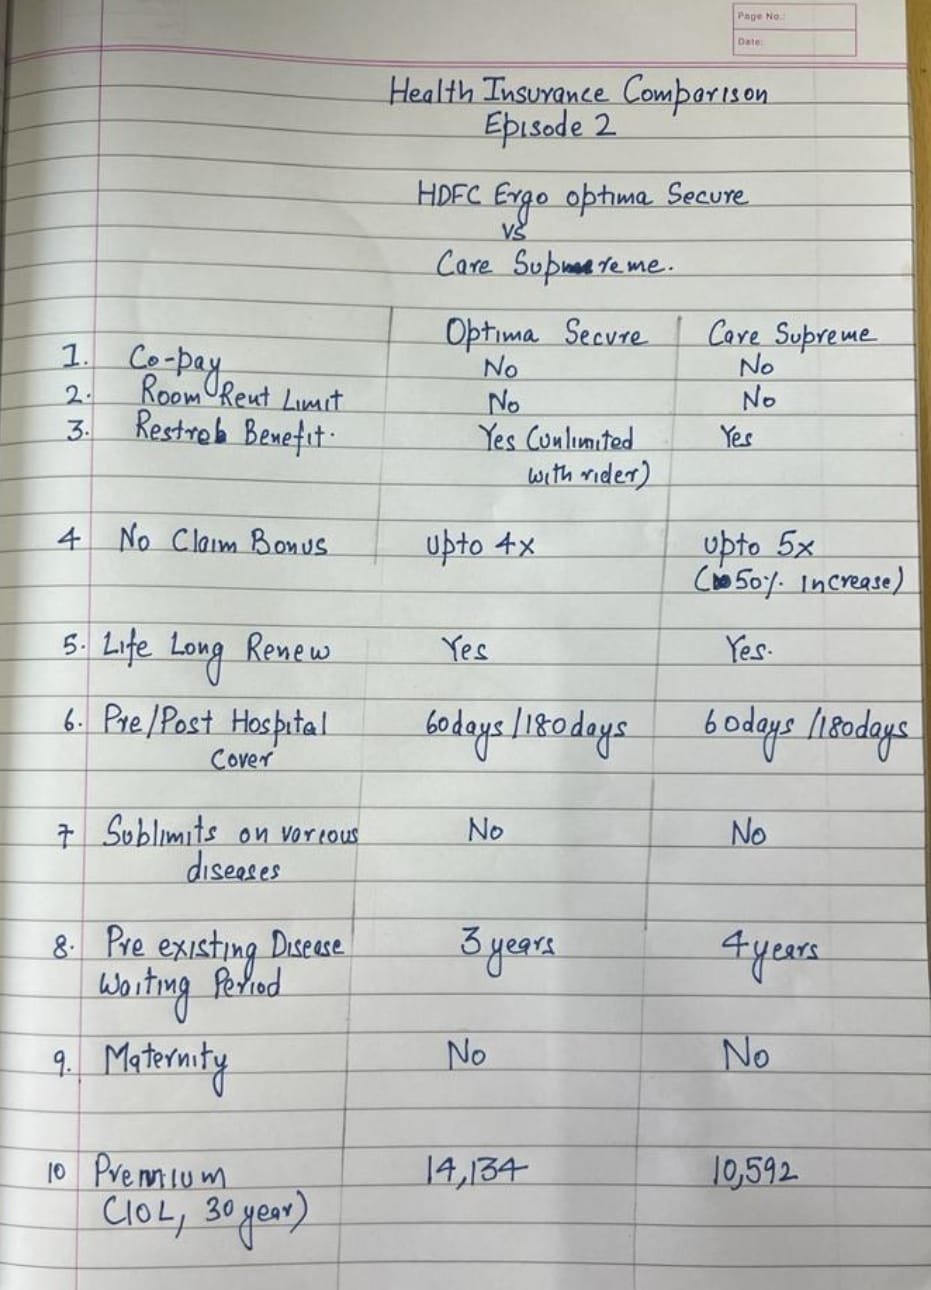 Page No.:
Date:
Health Insurance Comparison
Episode 2
HDFC Ergo Optima Secure
VS
Care Supreme.
Optima Secure Care Supreme
1. Co-pay No No
2. Room Rent Limit No No
3. Benefit. Yes (unlimited Yes
with rider)
4 No Claim Bonus Upto 4x Upto 5x
(50% increase)
5. Life Long Renew Yes Yes.
6. Pre/Post Hospital 60days/180days 60days/180days
Cover
7 Sublimits on various No No
diseases
8. Pre existing Disease 3 years 4 years
Waiting Period
9. Maternity No No
10 Premium 14,134 10,592
(10L, 30 year)